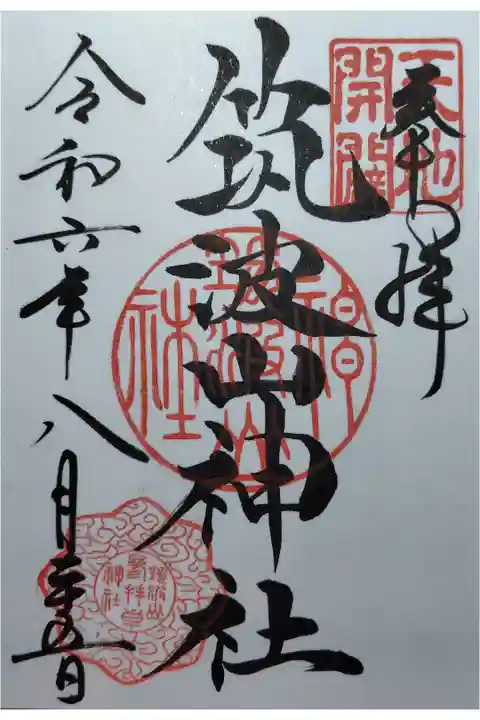 奉拝
天地
開闢
筑波山神社
筑波山
神社
令和六年八月二十五日
筑波山
神社
参拝章